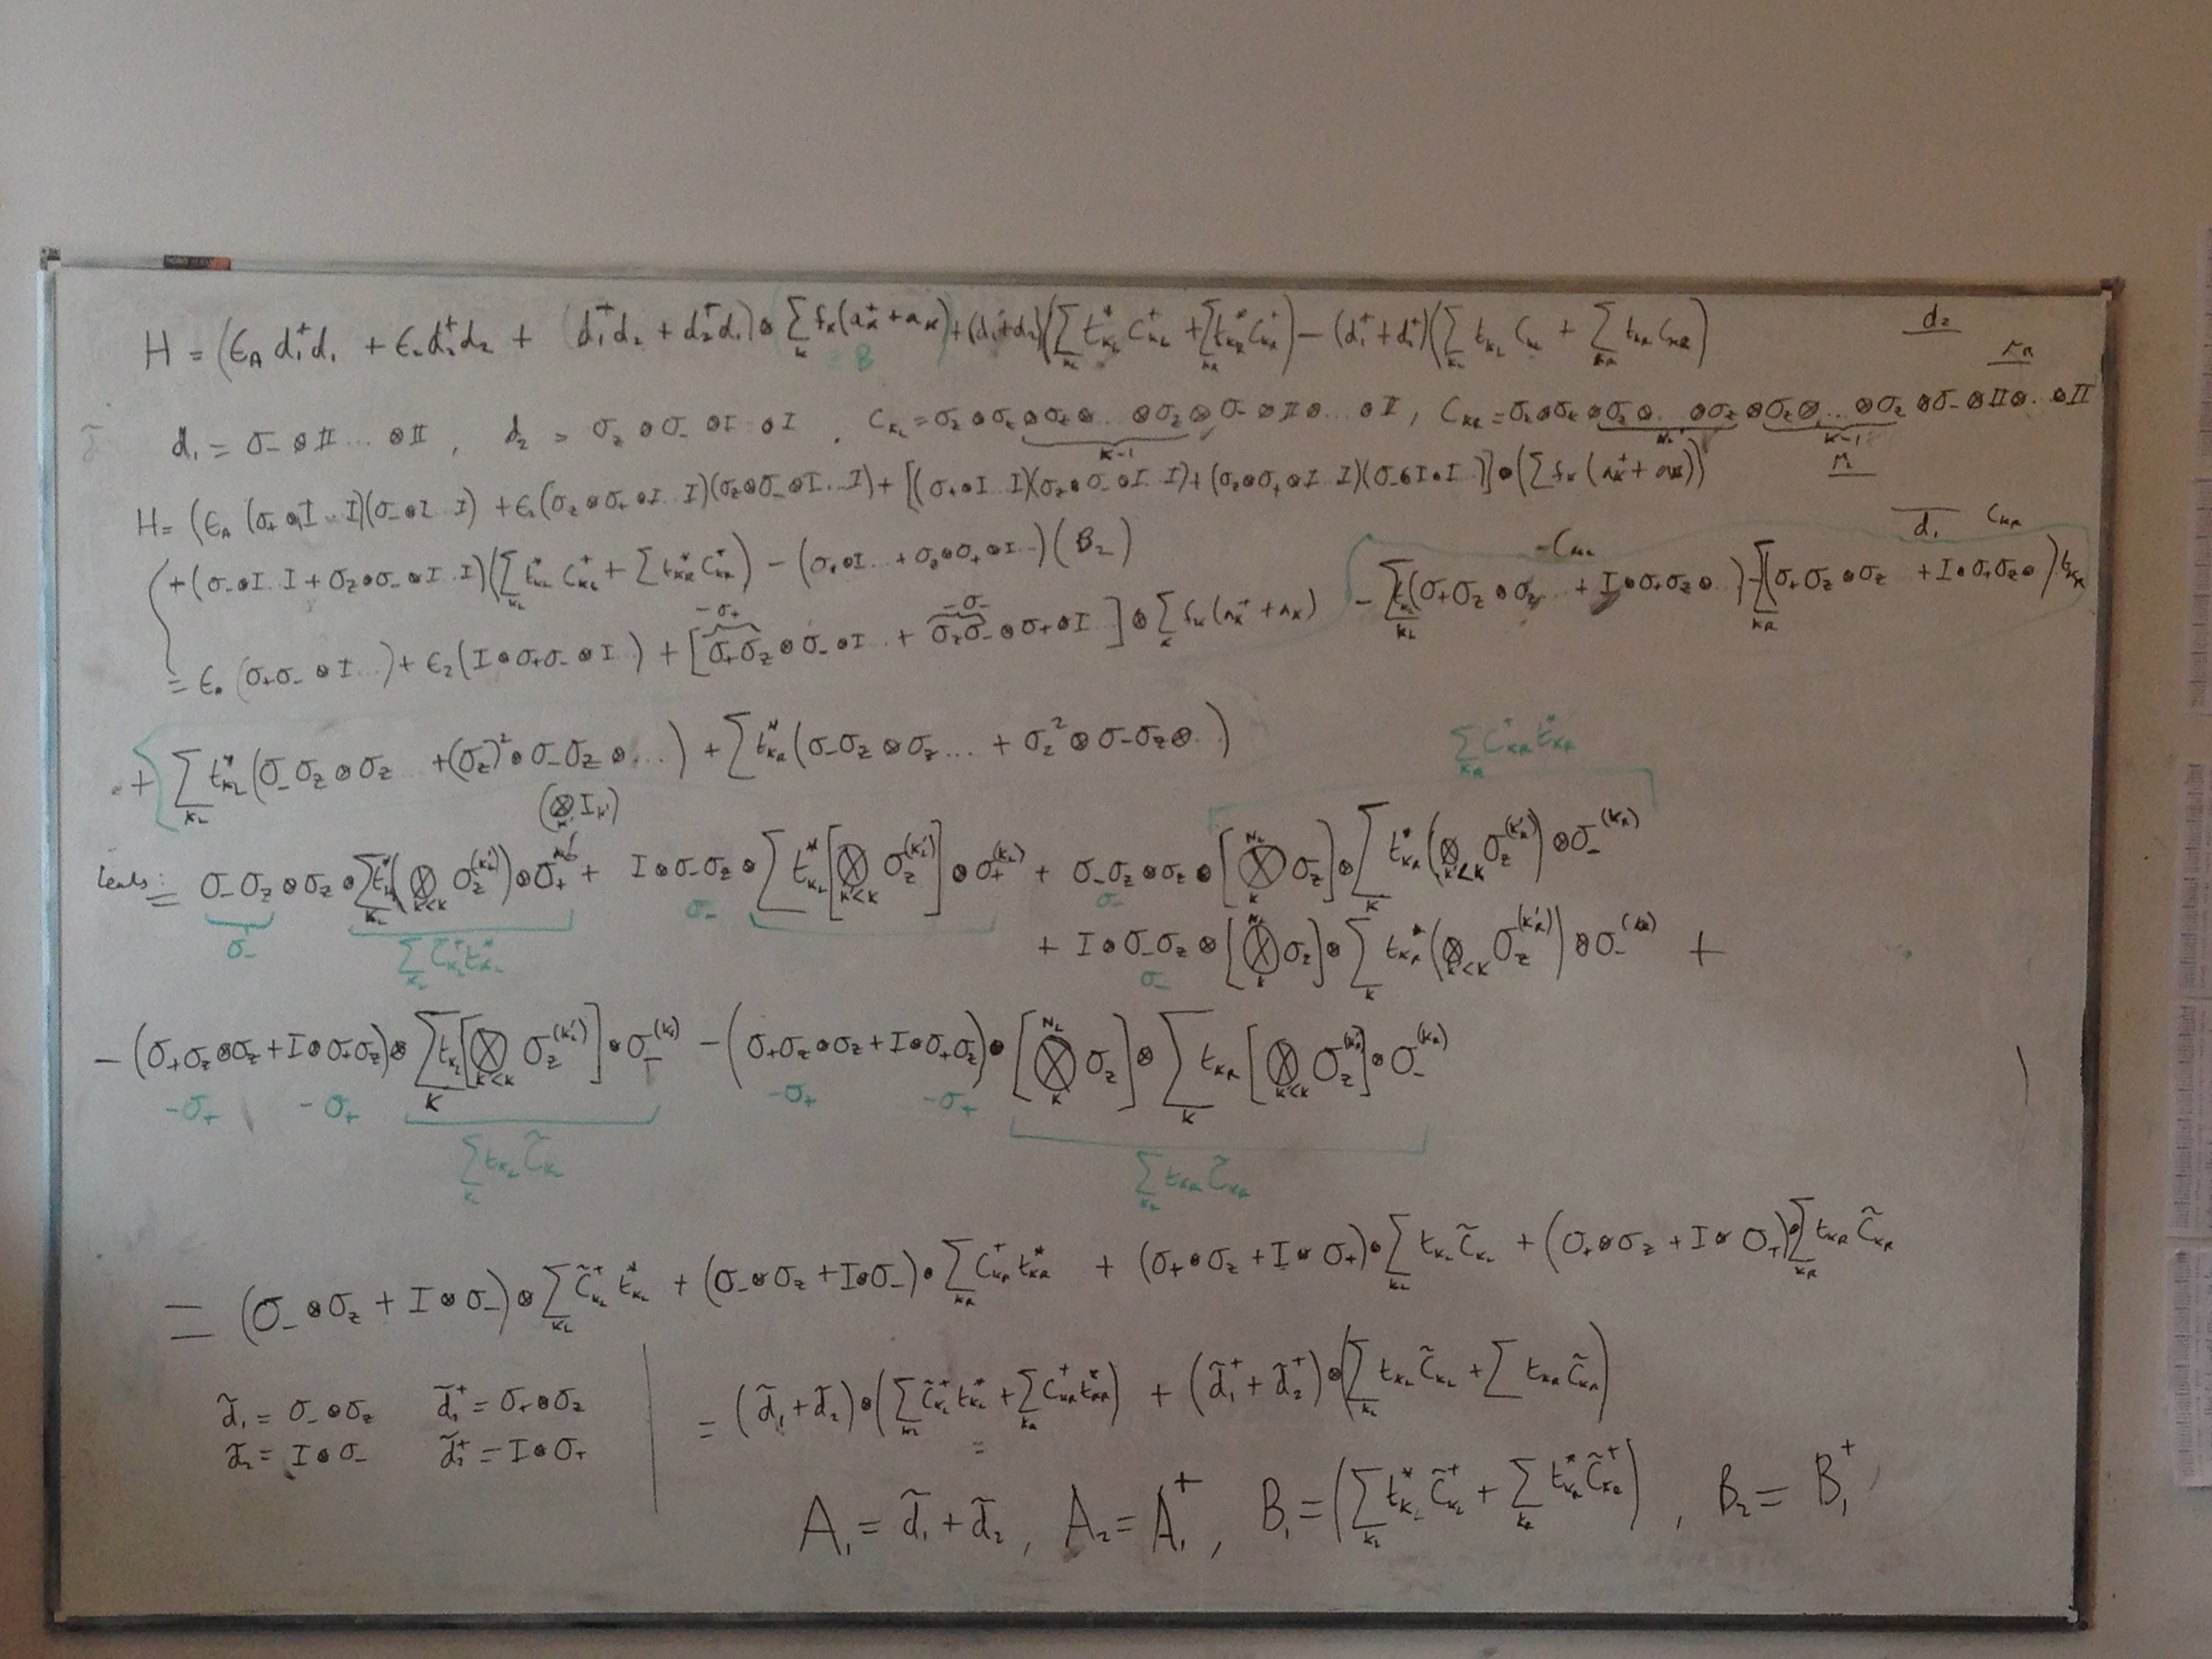 H = (ϵ_A d₁†d₁ + ϵ₂d₂†d₂ + (d₁†d₂ + d₂†d₁)⊗ ∑_k f_k(a_k† + a_k) + (d₁+d₂)(∑_{k_L} t*_{k_L} C†_{k_L} + ∑_{k_R} t*_{k_R} C†_{k_R}) − (d₁†+d₂†)(∑_{k_L} t_{k_L} C_{k_L} + ∑_{k_R} t_{k_R} C_{k_R})
= B
d₂
d₁ = σ₋⊗𝕀...⊗𝕀 , d₂ = σ_z⊗σ₋⊗I⊗I , C_{k_L} = σ_z⊗σ_z⊗σ_z⊗...⊗σ_z⊗σ₋⊗𝕀⊗...⊗𝕀 , C_{k_R} = σ_z⊗σ_z⊗σ_z⊗...⊗σ_z⊗σ_z⊗...⊗σ_z⊗σ₋⊗𝕀⊗..⊗𝕀
k-1 N_L k-1
H = (ϵ_A (σ₊⊗I...I)(σ₋⊗I...I) + ϵ₂(σ_z⊗σ₊⊗I...I)(σ_z⊗σ₋⊗I...I) + [(σ₊⊗I...I)(σ_z⊗σ₋⊗I..I) + (σ_z⊗σ₊⊗I..I)(σ₋⊗I⊗I..)]⊗(∑ f_k(a_k† + a_k))
d₁ C_{k_R}
+(σ₋⊗I..I + σ_z⊗σ₋⊗I..I)(∑_{k_L} t*_{k_L} C†_{k_L} + ∑ t*_{k_R} C†_{k_R}) − (σ₊⊗I... + σ_z⊗σ₊⊗I...)(B₂)
− ∑_{k_L} t_{k_L}(σ₊σ_z⊗σ_z... + I⊗σ₊σ_z⊗...) − ∑_{k_R}(σ₊σ_z⊗σ_z + I⊗σ₊σ_z⊗) t_{k_R}
-σ₊ -σ₋
= ϵ_A (σ₊σ₋⊗I...) + ϵ₂(I⊗σ₊σ₋⊗I..) + [σ₊σ_z⊗σ₋⊗I... + σ_zσ₋⊗σ₊⊗I..]⊗∑_k f_k(a_k† + a_k)
+ ∑_{k_L} t*_{k_L}(σ₋σ_z⊗σ_z... + (σ_z)²⊗σ₋σ_z⊗...) + ∑ t*_{k_R}(σ₋σ_z⊗σ_z... + σ_z²⊗σ₋σ_z⊗..)
∑_{k_R} C†_{k_R} t*_{k_R}
(⊗_{k'} I_{k'})
leads: = σ₋σ_z⊗σ_z⊗∑_{k_L} t*_k(⊗_{k'<k} σ_z^{(k'_L)})⊗σ₊ + I⊗σ₋σ_z⊗∑ t*_{k_L}[⊗_{k'<k} σ_z^{(k'_L)}]⊗σ₊^{(k_L)} + σ₋σ_z⊗σ_z⊗[⊗_k^{N_L} σ_z]⊗∑_k t*_{k_R}(⊗_{k'<k} σ_z^{(k'_R)})⊗σ₋^{(k_R)}
σ₋ ∑_{k_L} C̃†_{k_L} t*_{k_L} σ₋ σ₋
+ I⊗σ₋σ_z⊗[⊗_k^{N_L} σ_z]⊗∑_k t*_{k_R}(⊗_{k'<k} σ_z^{(k'_R)})⊗σ₋^{(k_R)} +
σ₋
−(σ₊σ_z⊗σ_z + I⊗σ₊σ_z)⊗∑_k t_{k_L}[⊗_{k'<k} σ_z^{(k'_L)}]⊗σ₋^{(k_L)} − (σ₊σ_z⊗σ_z + I⊗σ₊σ_z)⊗[⊗_k^{N_L} σ_z]⊗∑_k t_{k_R}[⊗_{k'<k} σ_z^{(k'_R)}]⊗σ₋^{(k_R)}
-σ₊ -σ₊ -σ₊ -σ₊
∑_{k_L} t_{k_L} C̃_{k_L} ∑ t_{k_R} C̃_{k_R}
= (σ₋⊗σ_z + I⊗σ₋)⊗∑_{k_L} C̃†_{k_L} t*_{k_L} + (σ₋⊗σ_z + I⊗σ₋)⊗∑_{k_R} C†_{k_R} t*_{k_R} + (σ₊⊗σ_z + I⊗σ₊)⊗∑_{k_L} t_{k_L} C̃_{k_L} + (σ₊⊗σ_z + I⊗σ₊)⊗∑_{k_R} t_{k_R} C̃_{k_R}
d̃₁ = σ₋⊗σ_z d̃₁† = σ₊⊗σ_z
d̃₂ = I⊗σ₋ d̃₂† = I⊗σ₊
= (d̃₁ + d̃₂)⊗(∑_{k_L} C̃†_{k_L} t*_{k_L} + ∑_{k_R} C†_{k_R} t*_{k_R}) + (d̃₁† + d̃₂†)⊗(∑_{k_L} t_{k_L} C̃_{k_L} + ∑ t_{k_R} C̃_{k_R})
A₁ = d̃₁ + d̃₂ , A₂ = A₁† , B₁ = (∑_{k_L} t*_{k_L} C̃†_{k_L} + ∑_{k_R} t*_{k_R} C̃†_{k_R}) , B₂ = B₁†